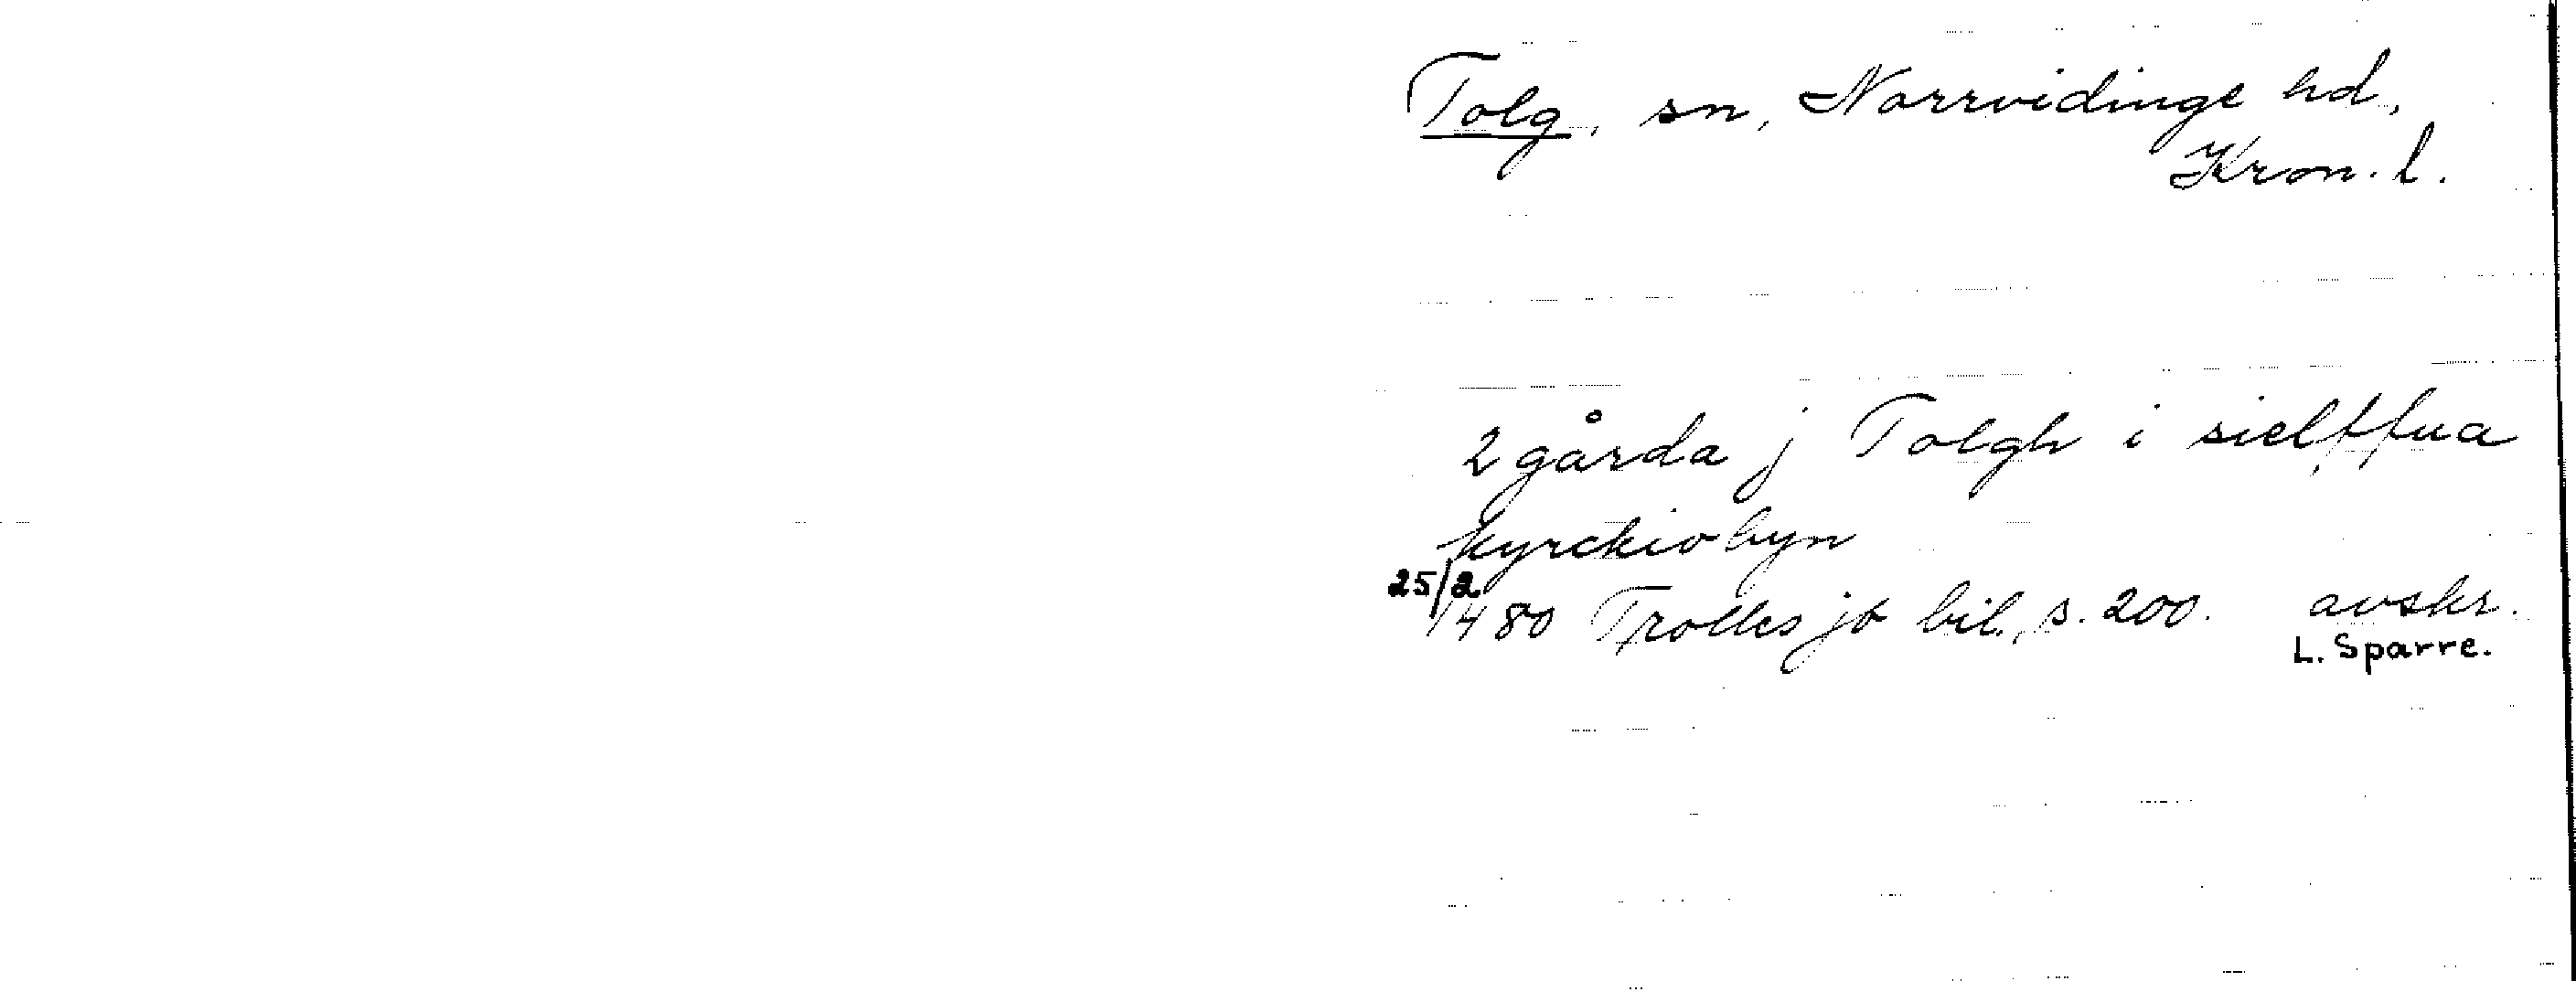 Tolg, sn, Norrvidinge hd,
Kron. l.
2 gårda j Tolgh i sielffua
kyrckiobyn
25/2
1480 Trolles jb bil., s. 200. avskr.
L. Sparre.